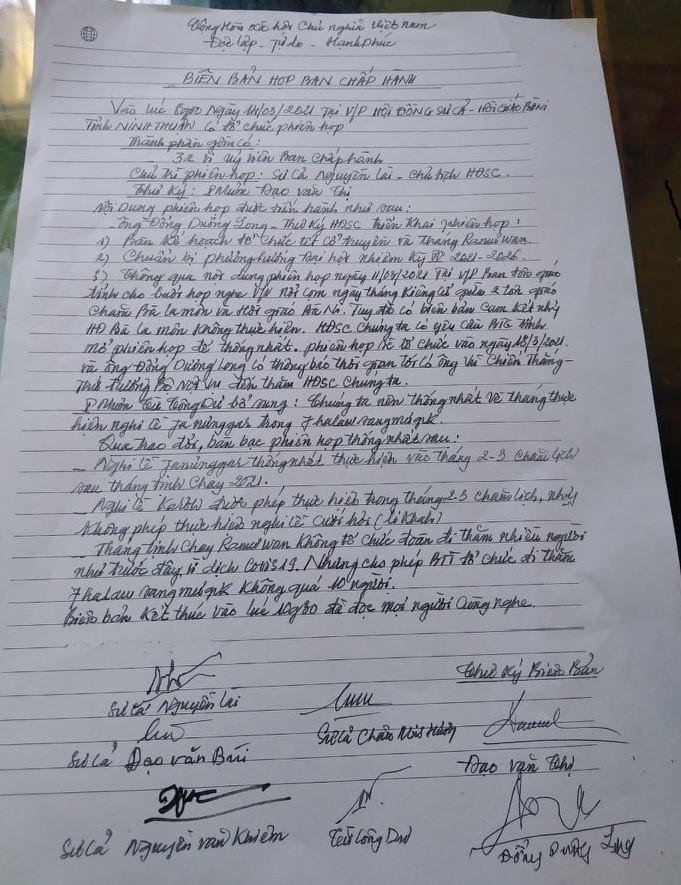 Cộng Hòa Xã hội Chủ nghĩa Việt Nam
Độc lập - Tự do - Hạnh phúc
BIÊN BẢN HỌP BAN CHẤP HÀNH
Vào lúc Ngày 14/03/2021 TẠI V/P HỘI ĐỒNG SƯ CẢ - HỒI GIÁO BÀNI
Tỉnh NINH THUẬN có tổ chức phiên họp
Thành phần gồm có:
- 32 vị uỷ viên Ban Chấp hành
Chủ trì phiên họp: Sư Cả Nguyên Lai - Chủ tịch HĐSC.
Thư Ký: Đạo Văn Thị
Nội Dung phiên họp được tiến hành như sau:
- Ông Đổng Dương Long - Thư Ký HĐSC triển Khai phiên họp:
1) Bàn Kế hoạch tổ chức tết cổ truyền và Tháng Ramưwan.
2) Chuẩn bị phương hướng Đại hội nhiệm Kỳ 2021-2026.
3) Thông qua nội dung phiên họp ngày 11/03/2021 Tại V/P Ban tôn giáo
tỉnh cho buổi họp nghe V/v Nôi cơm ngày tháng Kiêng cử giữa 2 tôn giáo
Chăm Bà la môn và Hồi giáo Bà Ni. Tuy đã có biên bản cam Kết nhưng
HĐ Bà la môn Không thực hiện. HĐSC chúng ta có yêu cầu BTG tỉnh
mở phiên họp để thống nhất. phiên họp sẽ tổ chức vào ngày 18/3/2021.
và ông Đổng Dương Long có thông báo thời gian tới có ông Vũ Chiến Thắng -
Thứ trưởng Bộ Nội vụ đến thăm HĐSC Chúng ta.
Từ Công Dư bổ sung: Chúng ta nên thống nhất về tháng thực
hiện nghi lễ Ja nưnggar trong 7 halau sang mưgik.
Qua trao đổi, bàn bạc phiên họp thống nhất sau:
- Nghi lễ Janưnggar thống nhất thực hiện vào tháng 2-3 chăm lịch
sau tháng tịnh Chay 2021.
- Nghi lễ Karơh được phép thực hiện trong tháng 2-3 chăm lịch, nhưng
Không phép thực hiện nghi lễ Cưới hỏi (Likhah)
- Tháng tịnh Chay Ramưwan Không tổ chức đoàn đi thăm nhiều người
như trước đây vì dịch Covid 19. Nhưng cho phép BTT tổ chức đi thăm
7 halau sang mưgik Không quá 10 người.
Biên bản Kết thúc vào lúc 10g30 đã đọc mọi người cùng nghe.
Thư Ký Biên Bản
Sư Cả Nguyên Lai
Sư Cả Châm
Sư Cả Đạo văn Búi
Đạo văn Thị
Sư Cả Nguyễn văn Khiêm
Từ Công Dư
Đổng Dương Long